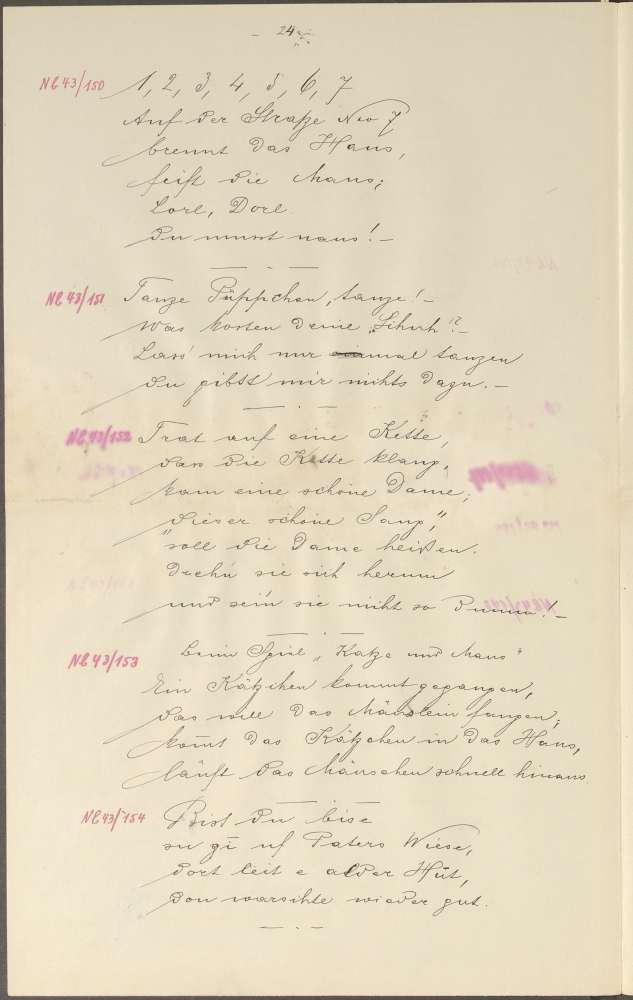 - 24 -
NC 43/150
1, 2, 3, 4, 5, 6, 7
Auf der Straße No 7
brennt das Haus,
feift die Maus;
Lorl, Dorl.
Du musst naus! -
NC 43/151
Tanze Püppchen, tanze! -
Was kosten deine Schuh!? -
Lass' mich nur einmal tanzen
du gibst mir nichts dazu. -
NC 43/152
Trat auf eine Kette,
dass die Kette klang,
kam eine schöne Dame,
„dieser schöne Sang,"
"soll die Dame heißen.
Dreh'n sie sich herum
und sei'n sie nicht so dumm! -
NC 43/153
Beim Spiel „Katze und Maus"
Ein Kätzchen kommt gegangen,
das will das Mäuslein fangen;
kom̄t das Kätzchen in das Haus,
läuft das Mäuschen schnell hinaus
NC 43/154
Bist du bise
su gi uf Paters Wiese,
dort leit e alder Hut,
don warschte wieder gut.